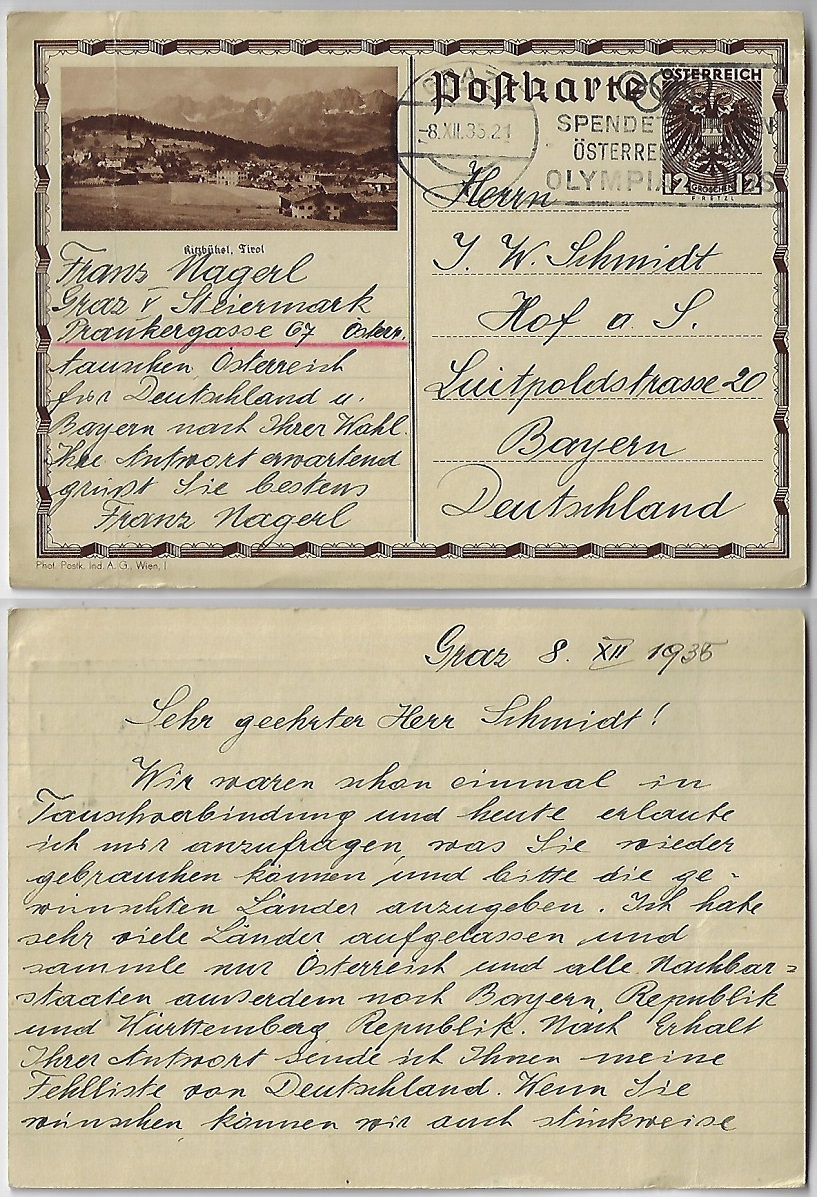 Postkarte
ÖSTERREICH
12 GROSCHEN 12
PRETZL
GRAZ
-8.XII.35.21
SPENDET
ÖSTERRE
OLYMPI
Kitzbühel, Tirol
Franz Nagerl
Graz V Steiermark
Prankergasse 67 Österr.
tauschen Österreich
für Deutschland u.
Bayern nach Ihrer Wahl.
Ihre Antwort erwartend
grüßt Sie bestens
Franz Nagerl
Herrn
J. W. Schmidt
Hof a. S.
Luitpoldstrasse 20
Bayern
Deutschland
Phot. Postk. Ind. A. G., Wien, I
Graz 8. XII 1935
Sehr geehrter Herr Schmidt!
Wir waren schon einmal in
Tauschverbindung und heute erlaube
ich mir anzufragen, was Sie wieder
gebrauchen können, und bitte die ge-
wünschten Länder anzugeben. Ich habe
sehr viele Länder aufgelassen und
sammle nur Österreich und alle Nachbar=
staaten ausserdem noch Bayern, Republik
und Württemberg Republik. Nach Erhalt
Ihrer Antwort sende ich Ihnen meine
Fehlliste von Deutschland. Wenn Sie
wünschen können wir auch stückweise